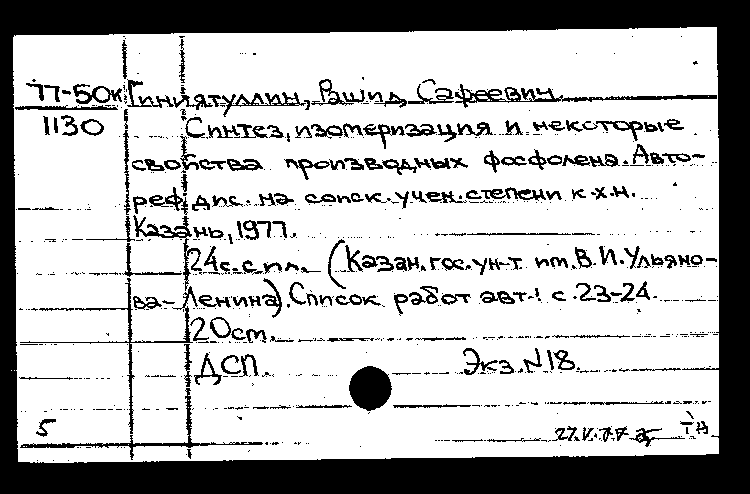 77-50к Гиниятуллин, Рашид Сафеевич.
1130 Синтез, изомеризация и некоторые
свойства производных фосфолена. Авто-
реф. дис. на соиск. учен. степени к.х.н.
Казань, 1977.
24с. с ил. (Казан. гос. ун-т им. В.И. Ульяно-
ва-Ленина). Список работ авт.: с. 23-24.
20см.
ДСП. Экз. N18.
5 27.V.77